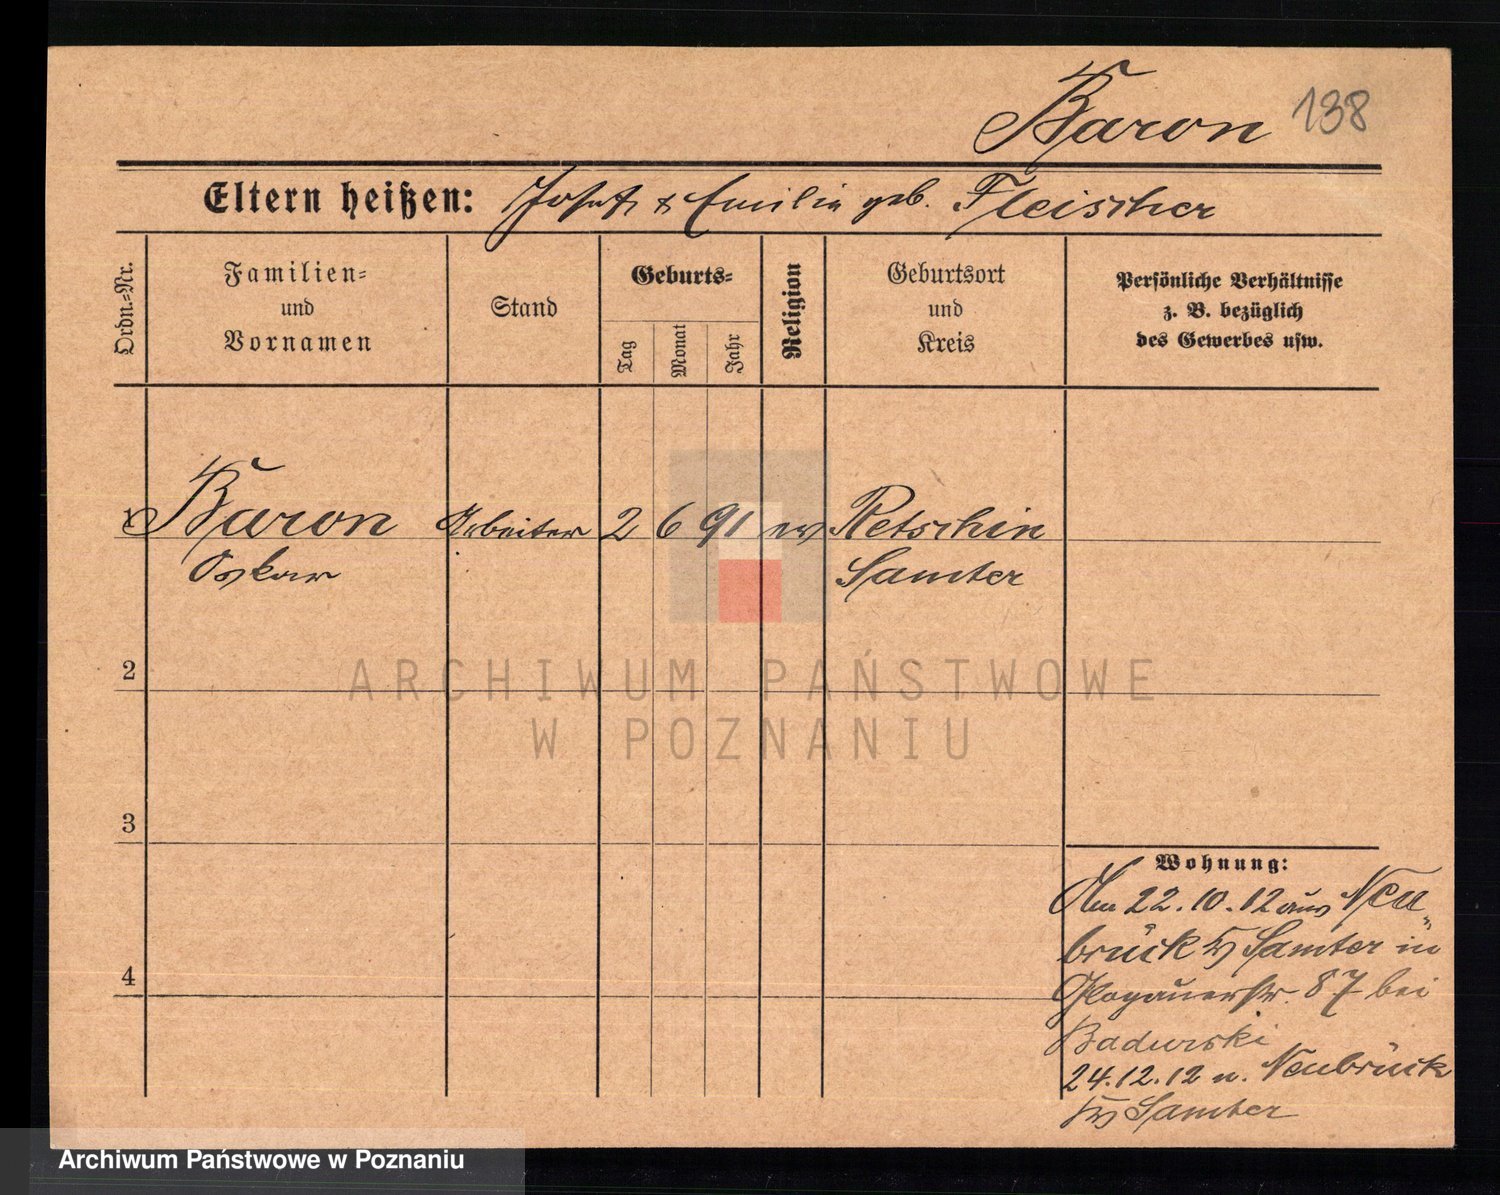 Baron 138
Eltern heißen: Josef & Emilie geb. Fleischer
Ordn.-Nr.
Familien-
und
Vornamen
Stand
Geburts-
Tag
Monat
Jahr
Religion
Geburtsort
und
Kreis
Persönliche Verhältnisse
z. B. bezüglich
des Gewerbes usw.
1 Baron Arbeiter 2 6 91 ev Retschin
Oskar Samter
2
ARCHIWUM PAŃSTWOWE
W POZNANIU
3
4
Wohnung:
Am 22.10.12 aus Neu-
brück Samter in
Glogauerstr. 87 bei
Badurski
24.12.12 n. Neubrück
Samter
Archiwum Państwowe w Poznaniu